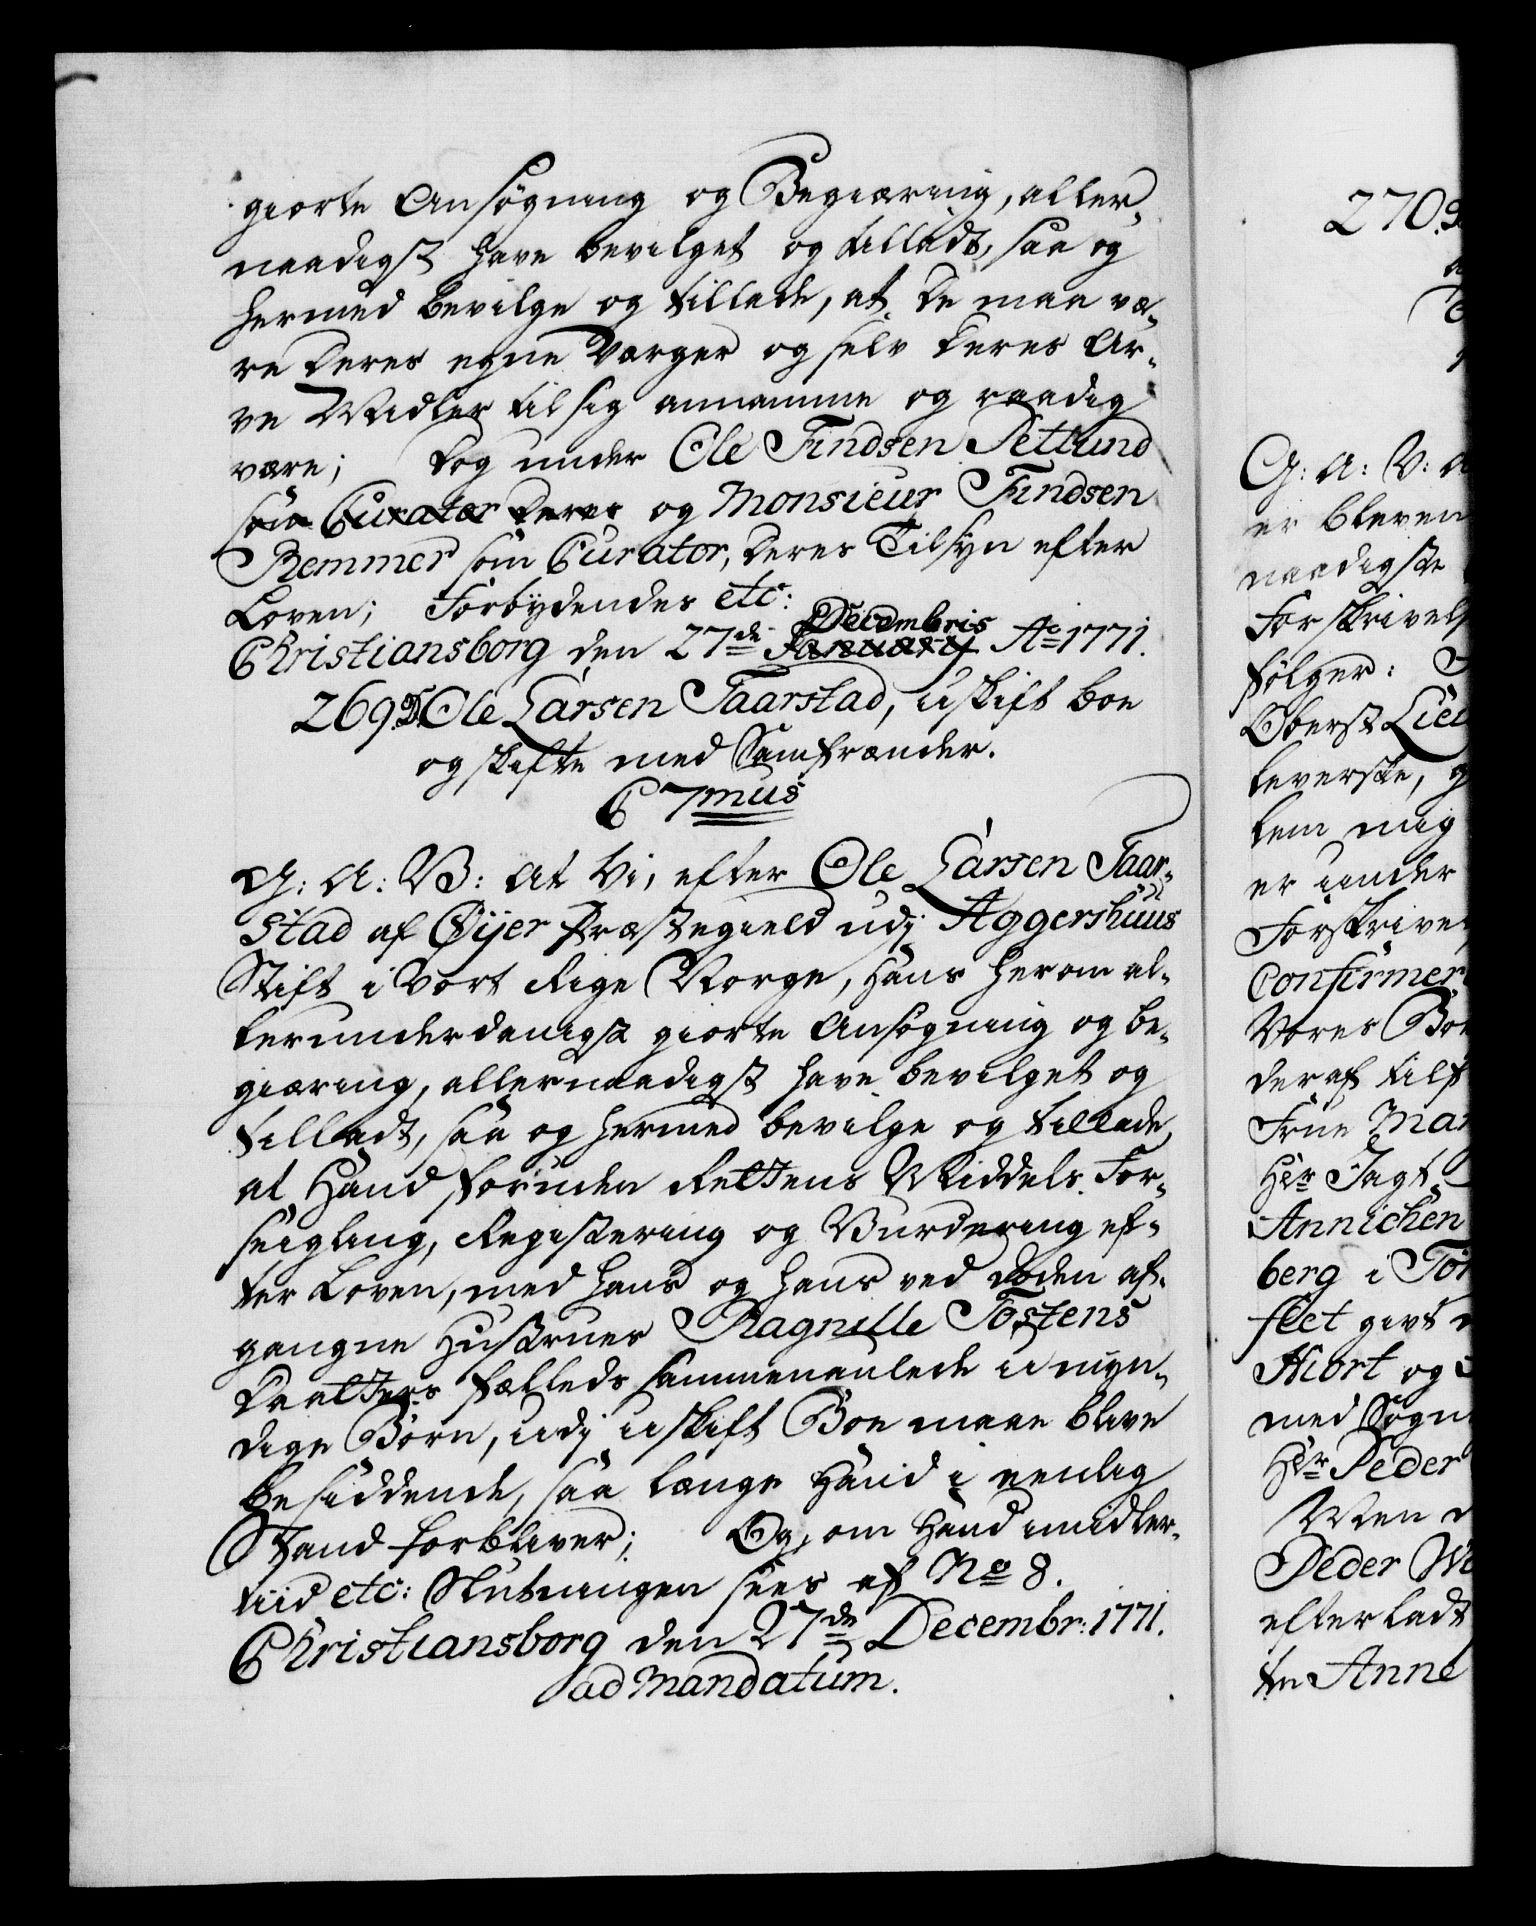 giorte Ansøgning og Begiæring, aller-
naadigst have bevilget og tilladt, saa og
hermed bevilge og tillade, at De maa væ-
re deres egne Værger og selv deres Ar-
ve Midler til sig annamme og raadig
være; dog under Ole Findsen Setlund
som Curator deres og Monsieur Findsen
Remmer som Curator, deres Tilsyn efter
Loven; Forbydendes etc:
Decembris
Christiansborg den 27de January Ao 1771.
269. Ole Larsen Taarstad, uskift boe
og skifte med Samfrænder.
C 7mus
G: A: V: At Vi, efter Ole Larsen Taar-
stad af Øijer Præstegield udj Aggershuus
Stift i Vort Rige Norge, hans herom al-
lerunderdanigst giorte Ansøgning og be-
giæring, allernaadigst have bevilget og
tilladt, saa og hermed bevilge og tillade,
at Hand foruden Rettens Middels For-
seigling, Registering og Vurdering ef-
ter Loven, med hans og hans ved døden af-
gangne Hustrues Ragnille Tostens
Daatters fælleds sammenavlede umyn-
dige Børn, udj uskift Boe maae blive
besiddende, saa længe Hand i eenlig
Stand forbliver; Og, om Hand imidler-
tiid etc: Slutningen sees af No 8.
Christiansborg den 27de Decembr: 1771.
ad Mandatum.
270.
G: A: V:
er bleven
naadigste
Forskrivels
følger:
Oberst Lieu
leverske,
lem mig
er under
Forskrive
Confirmer
Vores
deraf
Frue Mar
Her Jagt
Annichen
berg i
fleet givt
Hiort og
med Sogn
Her Peder
Men
Peder We
efterladt
Anne